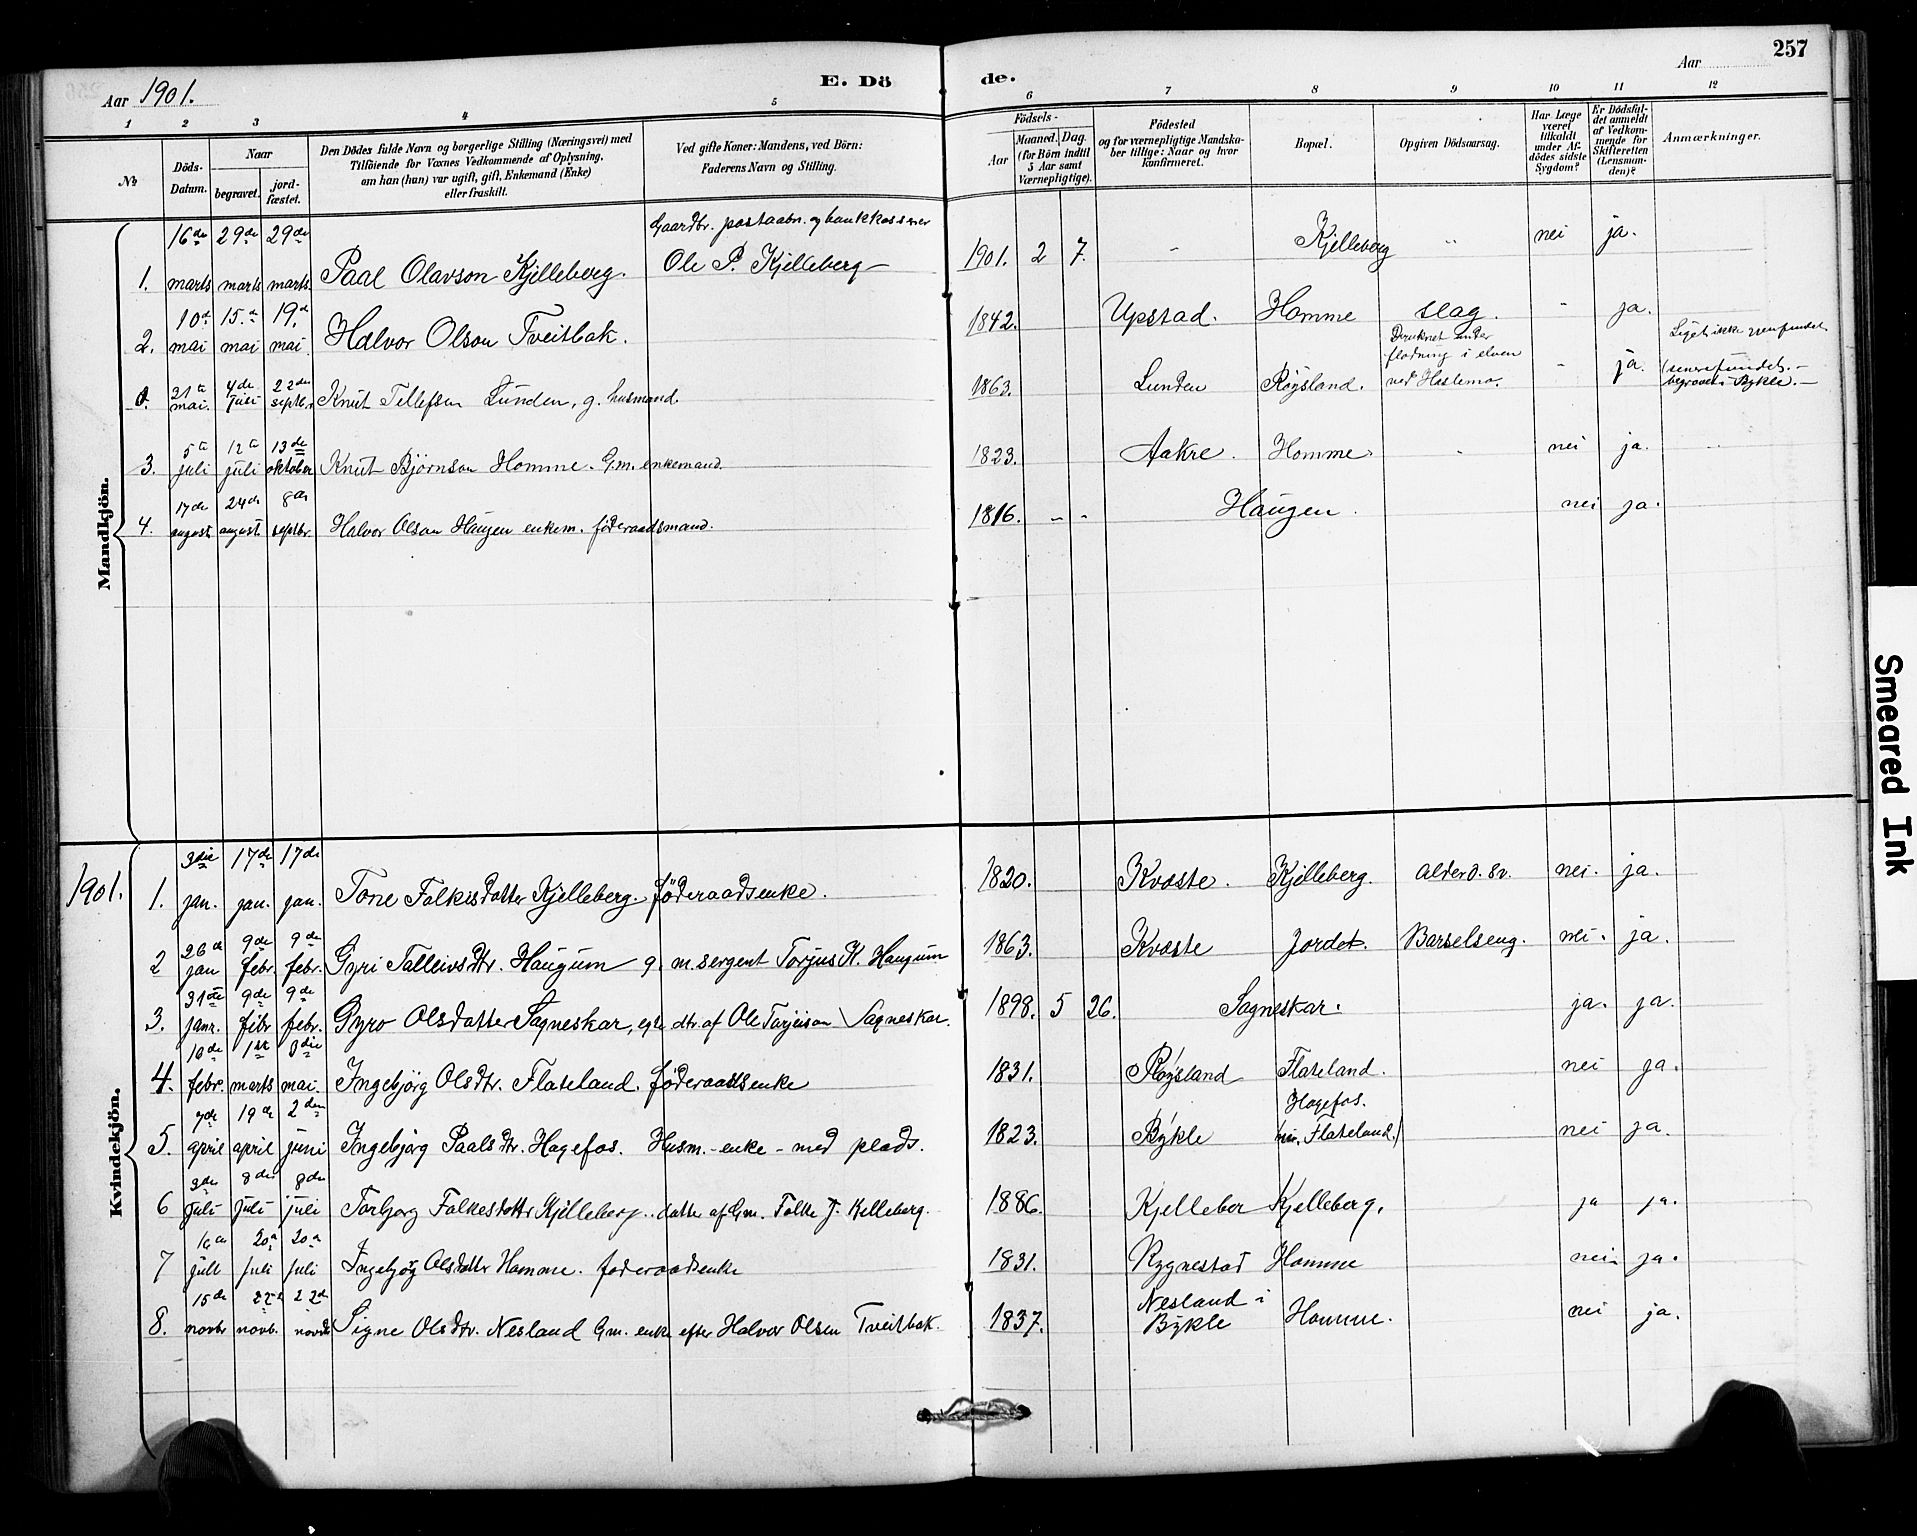 257
Aar 1901.
E. Dö de.
Aar
1 2 3 4 5 6 7 8 9 10 11 12
No
Döds-Datum.
Naar
begravet.
jord-fæstet.
Den Dödes fulde Navn og borgerlige Stilling (Næringsvei) med
Tilföiende for Voxnes Vedkommende af Oplysning,
om han (hun) var ugift, gift, Enkemand (Enke)
eller fraskilt.
Ved gifte Koner: Mandens, ved Börn:
Faderens Navn og Stilling.
Födsels-
Aar
Maaned. Dag.
(for Börn indtil
5 Aar samt
Værnepligtige).
Födested
og for værnepligtige Mandska-
ber tillige: Naar og hvor
konfirmeret.
Bopæl.
Opgiven Dödsaarsag.
Har Læge
været
tilkaldt
under Af-
dödes sidste
Sygdom?
Er Dödsfal-
det anmeldt
af Vedkom-
mende for
Skifteretten
(Lensman-
den)?
Anmærkninger.
Mandkjön.
Gaardbr. postaabn. og bankkasserer
1. 16de marts 29de marts 29de marts. Paal Olavson Kjelleberg. Ole P. Kjelleberg — 1901. 2 7. - Kjelleberg " nei ja.
2. 10de mai 15.de mai 19.de mai. Halvor Olson Tveitbak. 1842. Upstad. Homme slag. - ja.
0. 31te mai. 4de juli 22de septbr. Knut Tellefsen Lunden, g. husmand. 1863. Lunden Røysland. Druknet under flødning i elven ved Heslemo. - ja. Liget ikke gjenfundet. (senere fundet. – begravet i Bykle. –
3. 5te juli 12te juli 13de oktober Knut Bjørnson Homme. Gm. enkemand. 1823. Aakre. Homme. - nei ja. -
4. 17de august 24de august 8de septbr. Halvor Olson Haugen enkem. føderaadsmand. 1816. - - Haugen. nei ja.
1901.
Kvindekjön.
1. 3die jan. 17de jan. 17de jan. Tone Folkisdatter Kjelleberg. føderaadsenke. 1820. Kvaste. Kjelleberg. Alderd. sv. nei. ja.
2 26de jan 9de febr. 9de febr. Gyri Talleivsdtr. Haugum g. m. sergent Torjus K. Haugum 1863. Kvaste Jordet. Barselseng. nei. ja.
3. 31te janr. 9de febr 9de febr. Gyro Olsdatter Sagneskar, egte dtr. af Ole Tarjeison Sagneskar. 1898. 5 26. Sagneskar. ja. ja.
4. 10de febr. 1ste marts 3die mai. Ingebjörg Olsdtr. Flateland. føderaadsenke 1831. Røysland Flateland. nei ja.
5. 7de april 19de april 2den juni Ingebjörg Paalsdtr. Hagefos. Husm. - enke - med plads. 1823. Bykle Hagefos. Flateland.) nei ja.
6 3de juli 8de juli 8de juli Torbjorg Folkesdotter Kjelleberg. datter af Gm. Folke J. Kelleberg. 1886. Kjelleber Kjelleberg. ja ja.
7 juli 20de juli 20de juli Ingebjörg Olsdatter Homme. føderaadsenke 1831. Rygnestad Homme nei. ja.
8. 15de novbr 22de novb. 22de novbr Signe Olsdtr. Nesland Gm. enke efter Halvor Olsen Tveitbak. 1837. Nesland i Bykle Homme. nei ja.
Smeared Ink